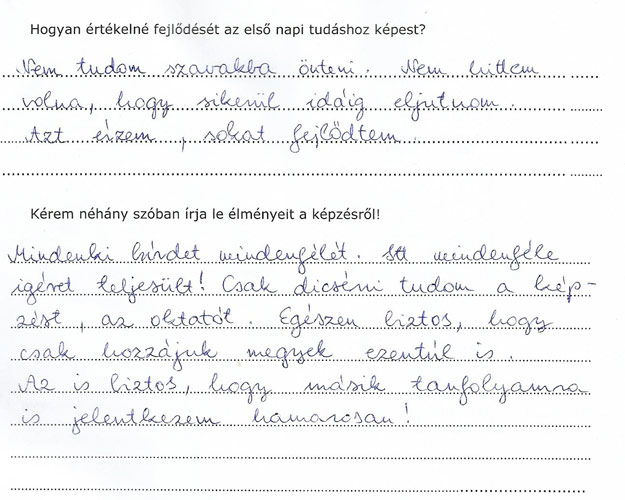 Hogyan értékelné fejlődését az első napi tudáshoz képest?
Nem tudom szavakba önteni. Nem hittem
volna, hogy sikerül idáig eljutnom.
Azt érzem, sokat fejlődtem.
Kérem néhány szóban írja le élményeit a képzésről!
Mindenki hírdet mindenfélét. Itt mindenféle
igéret teljesült! Csak dicsérni tudom a kép-
zést, az oktatót. Egészen biztos, hogy
csak hozzájuk megyek ezentúl is.
Az is biztos, hogy másik tanfolyamra
is jelentkezem hamarosan!